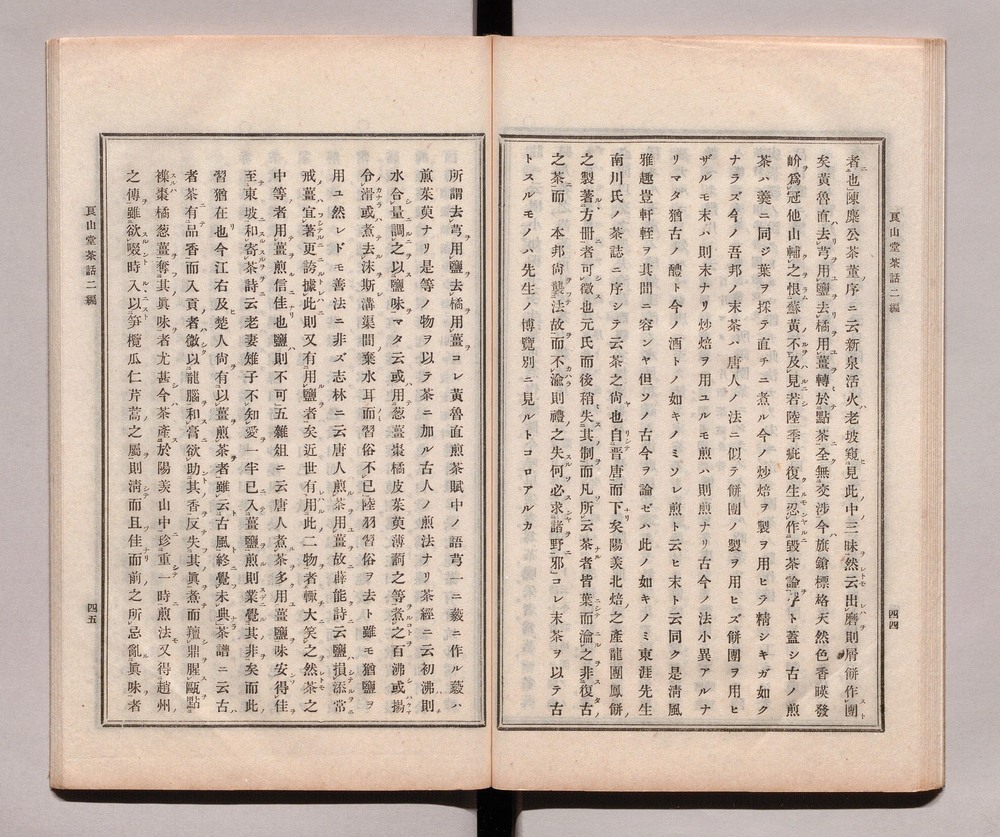 艮山堂茶話二編
四四
者也陳麋公茶董序ニ云新泉活火老坡窺見此中三昧然云出磨則屑餅作團
矣黃魯直去芎用鹽去橘用薑轉於點茶全無交涉今旗鎗標格天然色香暎發
岕爲冠他山輔之恨蘇黃不及見若陸季疵復生忍作毀茶論乎ト蓋シ古ノ煎
茶ハ羹ニ同ジ葉ヲ採テ直チニ煮ル今ノ炒焙ヲ製ヲ用ヒラ精シキガ如ク
ナラズ今ノ吾邦ノ末茶ハ唐人ノ法ニ似テ餅團ノ製ヲ用ヒズ餅團ヲ用ヒ
ザルモ末ハ則末ナリ炒焙ヲ用ユルモ煎ハ則煎ナリ古今ノ法小異アルナ
リマタ猶古ノ醴ト今ノ酒トノ如キノミソレ煎ト云ヒ末ト云同ク是淸風
雅趣豈軒輊ヲ其間ニ容ンヤ但ソノ古今ヲ論ゼハ此ノ如キノミ東涯先生
南川氏ノ茶誌ニ序シテ云茶之尙也自晋唐而下矣陽羨北焙之產龍團鳳餅
之製著方冊者可徵也元氏而後稍失其制而凡所云茶者皆葉而瀹之非復古
之茶而本邦尙襲古法故而不渝則禮之失何必求諸野邪コレ末茶ヲ以テ古
トスルモノハ先生ノ博覽別ニ見ルトコロアルカ
所謂去芎用鹽去橘用薑コレ黃魯直煎茶賦中ノ語芎一ニ藙ニ作ル藙ハ
煎茱萸ナリ是等ノ物ヲ以テ茶ニ加ル古人ノ煎法ナリ茶經ニ云初沸則
水合量調之以鹽味マタ云或用葱薑棗橘皮茱萸薄荷之等煮之百沸或揚
令滑或煮去沫斯溝渠間棄水耳而習俗不已陸羽習俗ヲ去ト雖モ猶鹽ヲ
用ユ然レドモ善法ニ非ズ志林ニ云唐人煎茶用薑故薜能詩云鹽損添常
戒薑宜著更誇據此則又有用鹽者矣近世有用此二物者輒大笑之然茶之
中等者用薑煎信佳也鹽則不可五雜俎ニ云唐人煮茶多用薑鹽味安得佳
至東坡和寄茶詩云老妻雉子不知愛一半已入薑鹽煎則業覺其非矣而此
習猶在也今江右及楚人尙有以薑煎茶者雖云古風終覺未典茶譜ニ云古
者茶有品香而入貢者微以龍腦和膏欲助其香反失其眞煮而羶鼎腥甌點
襍棗橘葱薑奪其眞味者尤甚今茶產於陽羨山中珍重一時煎法又得趙州
之傳雖欲啜時入以笋欖瓜仁芹蒿之屬則淸而且佳而前之所忌亂眞味者
艮山堂茶話二編
四五